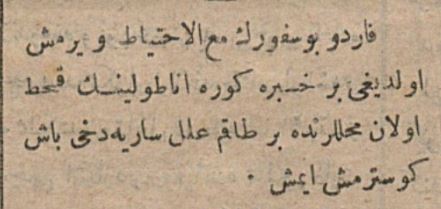 فاردو بوسفورك مع الاحتياط ويرمش
اولديغى بر خبره كوره اناطولينك قحط
اولان محللرنده بر طاقم علل ساريه دخى باش
كوسترمش ايمش ٠